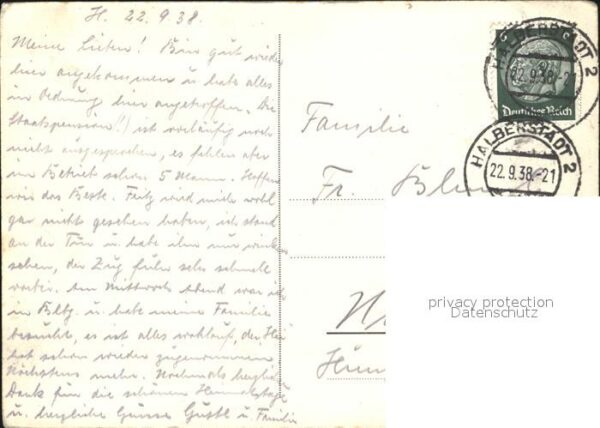 H. 22.9.38.
Meine Lieben! Bin gut wieder
hier angekommen u. habe alles
in Ordnung hier angetroffen. Die
Staatspension(!) ist vorläufig noch
nicht ausgesprochen, es fehlen aber
im Betrieb schon 5 Mann. Hoffen
wir das Beste. Fritz wird mich wohl
gar nicht gesehen haben, ich stand
an der Tür u. habe ihn nur winken
sehen, der Zug fuhr sehr schnell
weiter. Am Mittwoch Abend war ich
in Bltg. u. habe meine Familie
besucht, es ist alles wohlauf, der
hat schon wieder zugenommen
Nächstens mehr. Nochmals herzlich
Dank für die schönen
u. herzliche Grüsse Gustl u. Familie
Familie
Fr. Blum
6
Deutsches Reich
HALBERSTADT 2
22.9.38.-21
HALBERSTADT 2
22.9.38.-21
privacy protection
Datenschutz